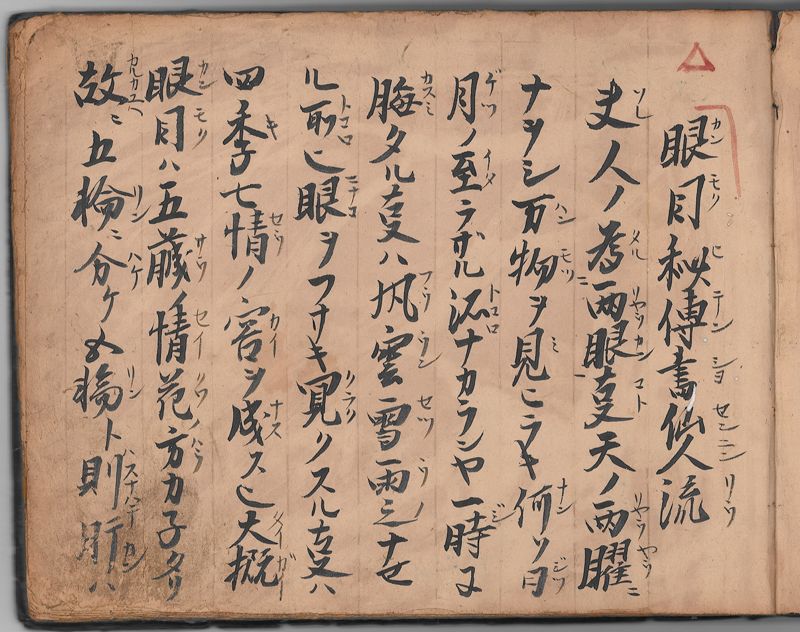 眼目秘傳書仙人流
夫人ノ為両眼事天ノ両曜ニ
ナヲシ万物ヲ見ヒラキ何ソ日
月ノ至ラザル処ナカランヤ一時ニ
晦タル事ハ風雲雪雨之ナセ
ル所也眼ヲフサキ冥クスル事ハ
四季七情ノ害ヲ成ス也大概
眼目ハ五臓ノ情花方カ子タリ
故ニ五輪ニ分ケ五輪ト則肝ハ